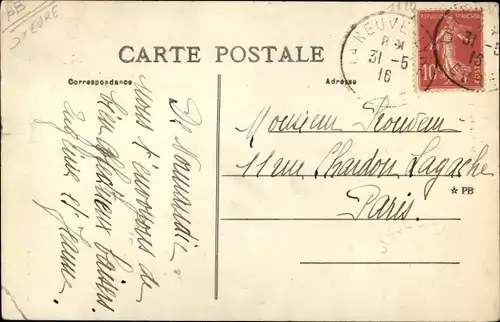 PB
27 EURE
CARTE POSTALE
Correspondance
Adresse
LA NEUVE
31 - 5
16
REPUBLIQUE FRANÇAISE
10
POSTES
31
-5
16
De Normandie
nous t'envoyons de
bien affectueux baisers.
Eugénie et Jeanne.
Monsieur
11 rue Chardon Lagache
Paris.
★ PB